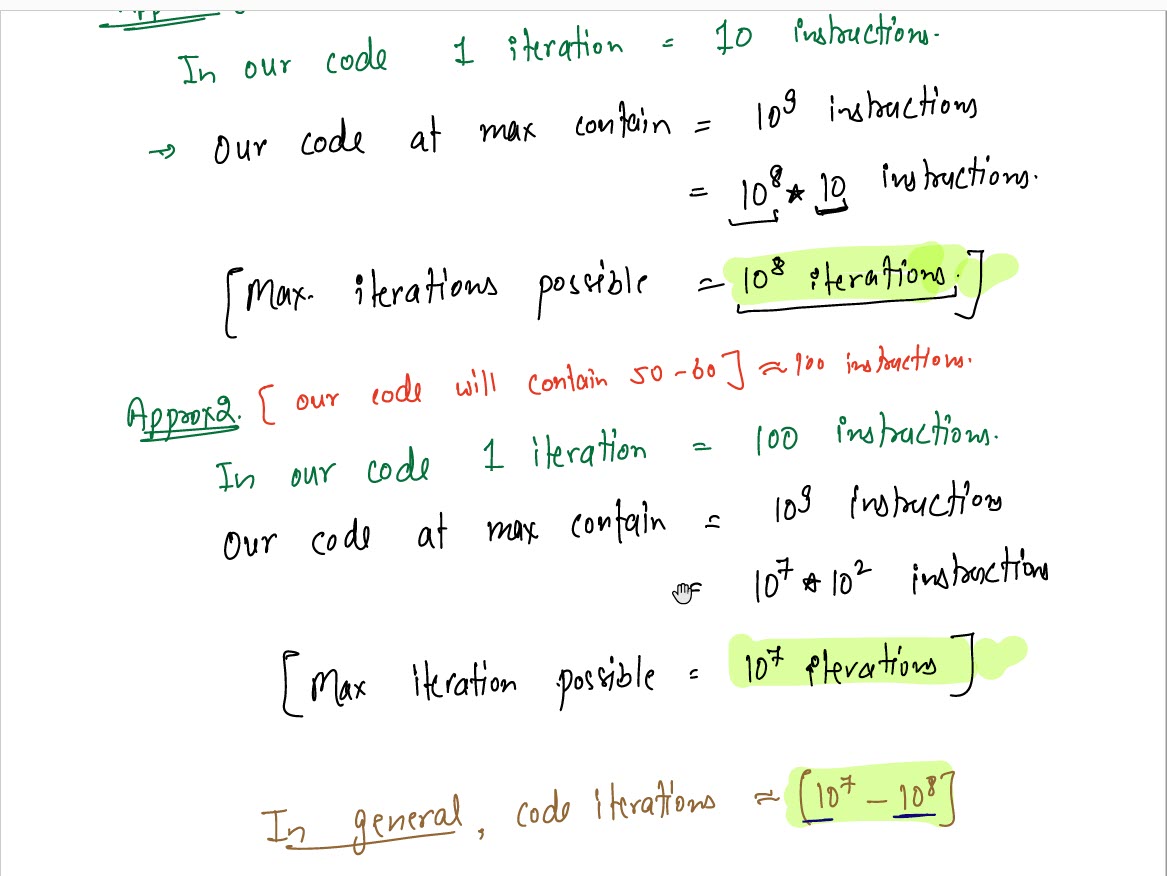 In our code 1 iteration = 10 instructions.
→ Our code at max contain = 10⁹ instructions
= 10⁸ * 10 instructions.
[Max. iterations possible = 10⁸ iterations.]
Approx2. [our code will contain 50-60] ≈ 100 instructions.
In our code 1 iteration = 100 instructions.
Our code at max contain = 10⁹ instructions
= 10⁷ * 10² instructions
[Max iteration possible = 10⁷ iterations]
In general, code iterations ≈ [10⁷ - 10⁸]